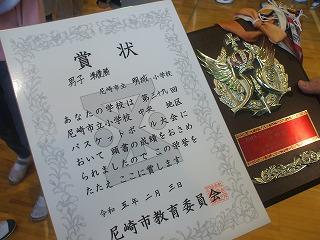 賞状
男子 準優勝
尼崎市立 明城小学校
あなたの学校は第三十九回
尼崎市立小学校 中央 地区
バスケットボール大会に
おいて頭書の成績をおさめ
られましたのでこの栄誉を
たたえここに賞します
令和五年二月三日
尼崎市教育委員会